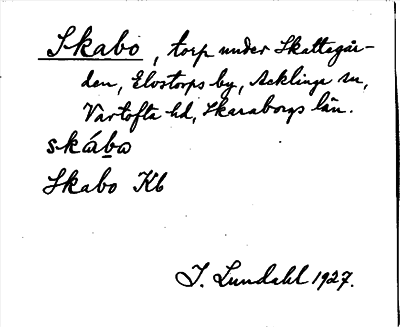 Skabo, torp under Skattegår-
den, Elvstorps by, Acklinga sn,
Vartofta hd, Skaraborgs län.
skábo
Skabo Kb
I. Lundahl 1927.